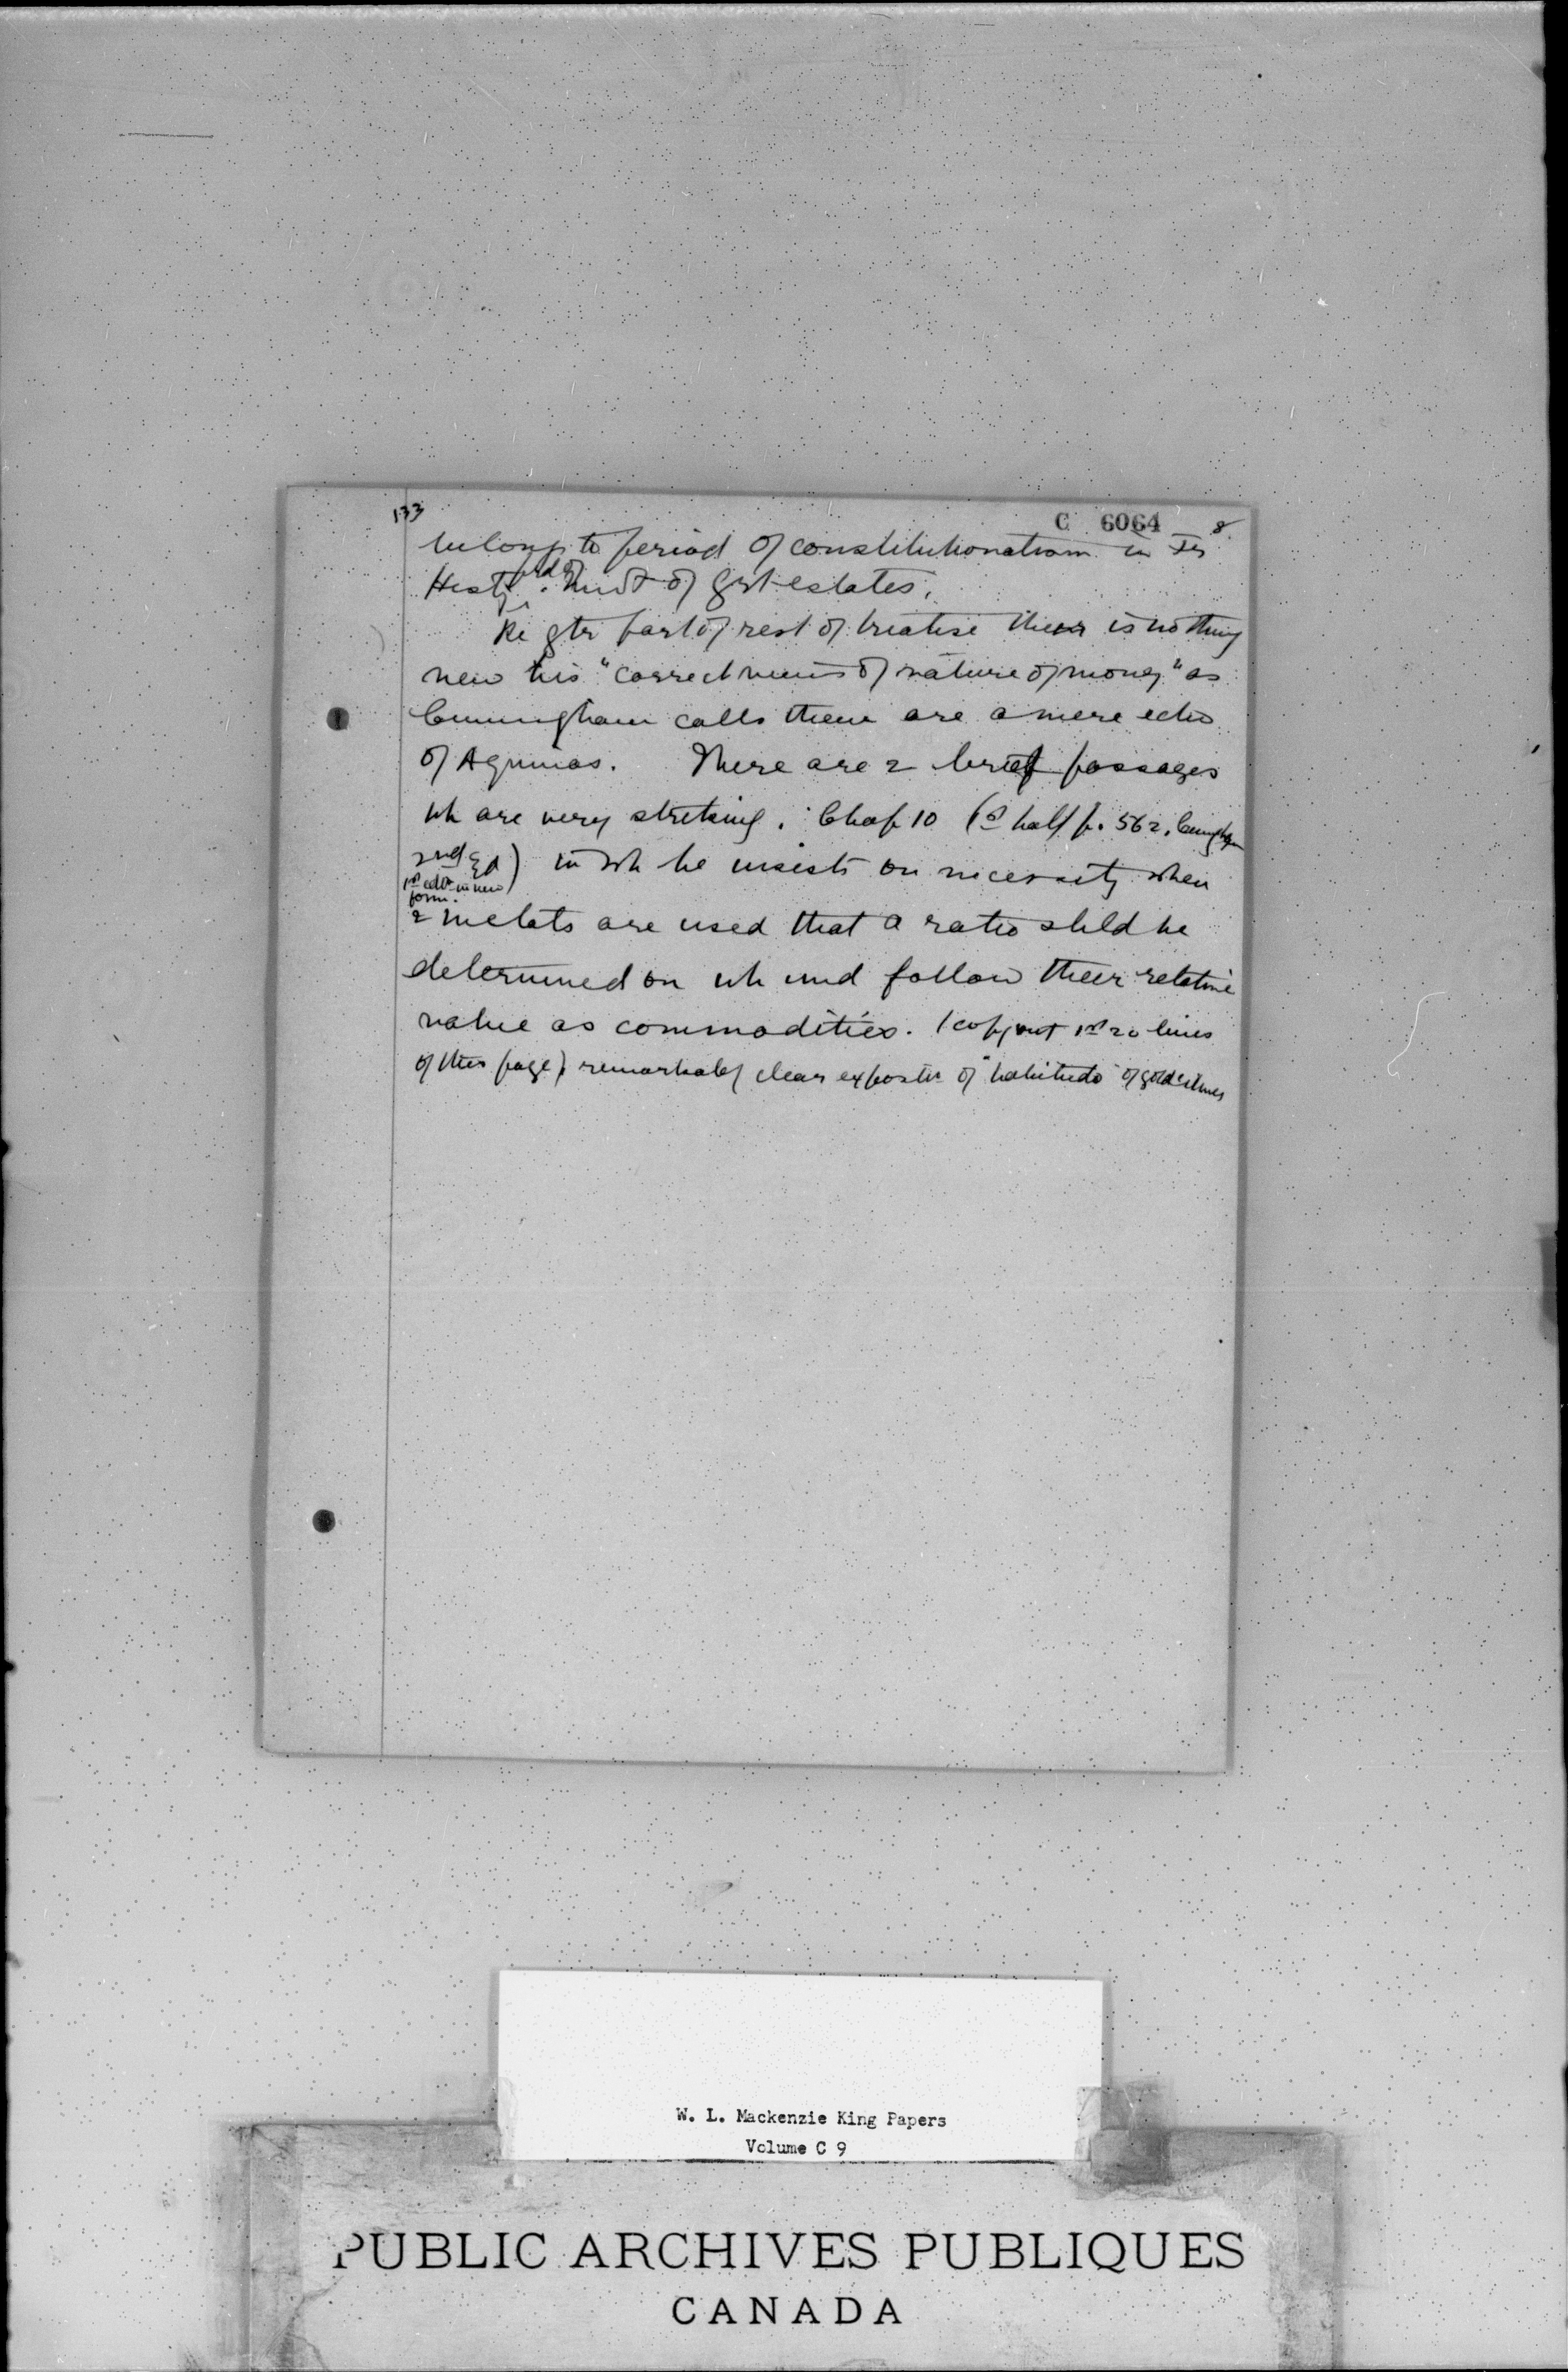 133
C 6064 8.
belong to period of constitutionalism in Fr
Hist of grt estates.
Re gtr part of rest of treatise there is nothing
new his "correct views of nature of money" as
Cunningham calls them are a mere echo
of Aquinas. There are 2 brief passages
wh are very striking. Chap 10 (1st half p. 562, Cunghm
2nd Ed) in wh he insists on necessity when
1st edtn in new
form.
2 metals are used that a ratio shld be
determined on wh wd follow their relative
value as commodities. (copy out 1st 20 lines
of this page) remarkably clear expostn of "habitudo" of gold & silver
W. L. Mackenzie King Papers
Volume C 9
PUBLIC ARCHIVES PUBLIQUES
CANADA